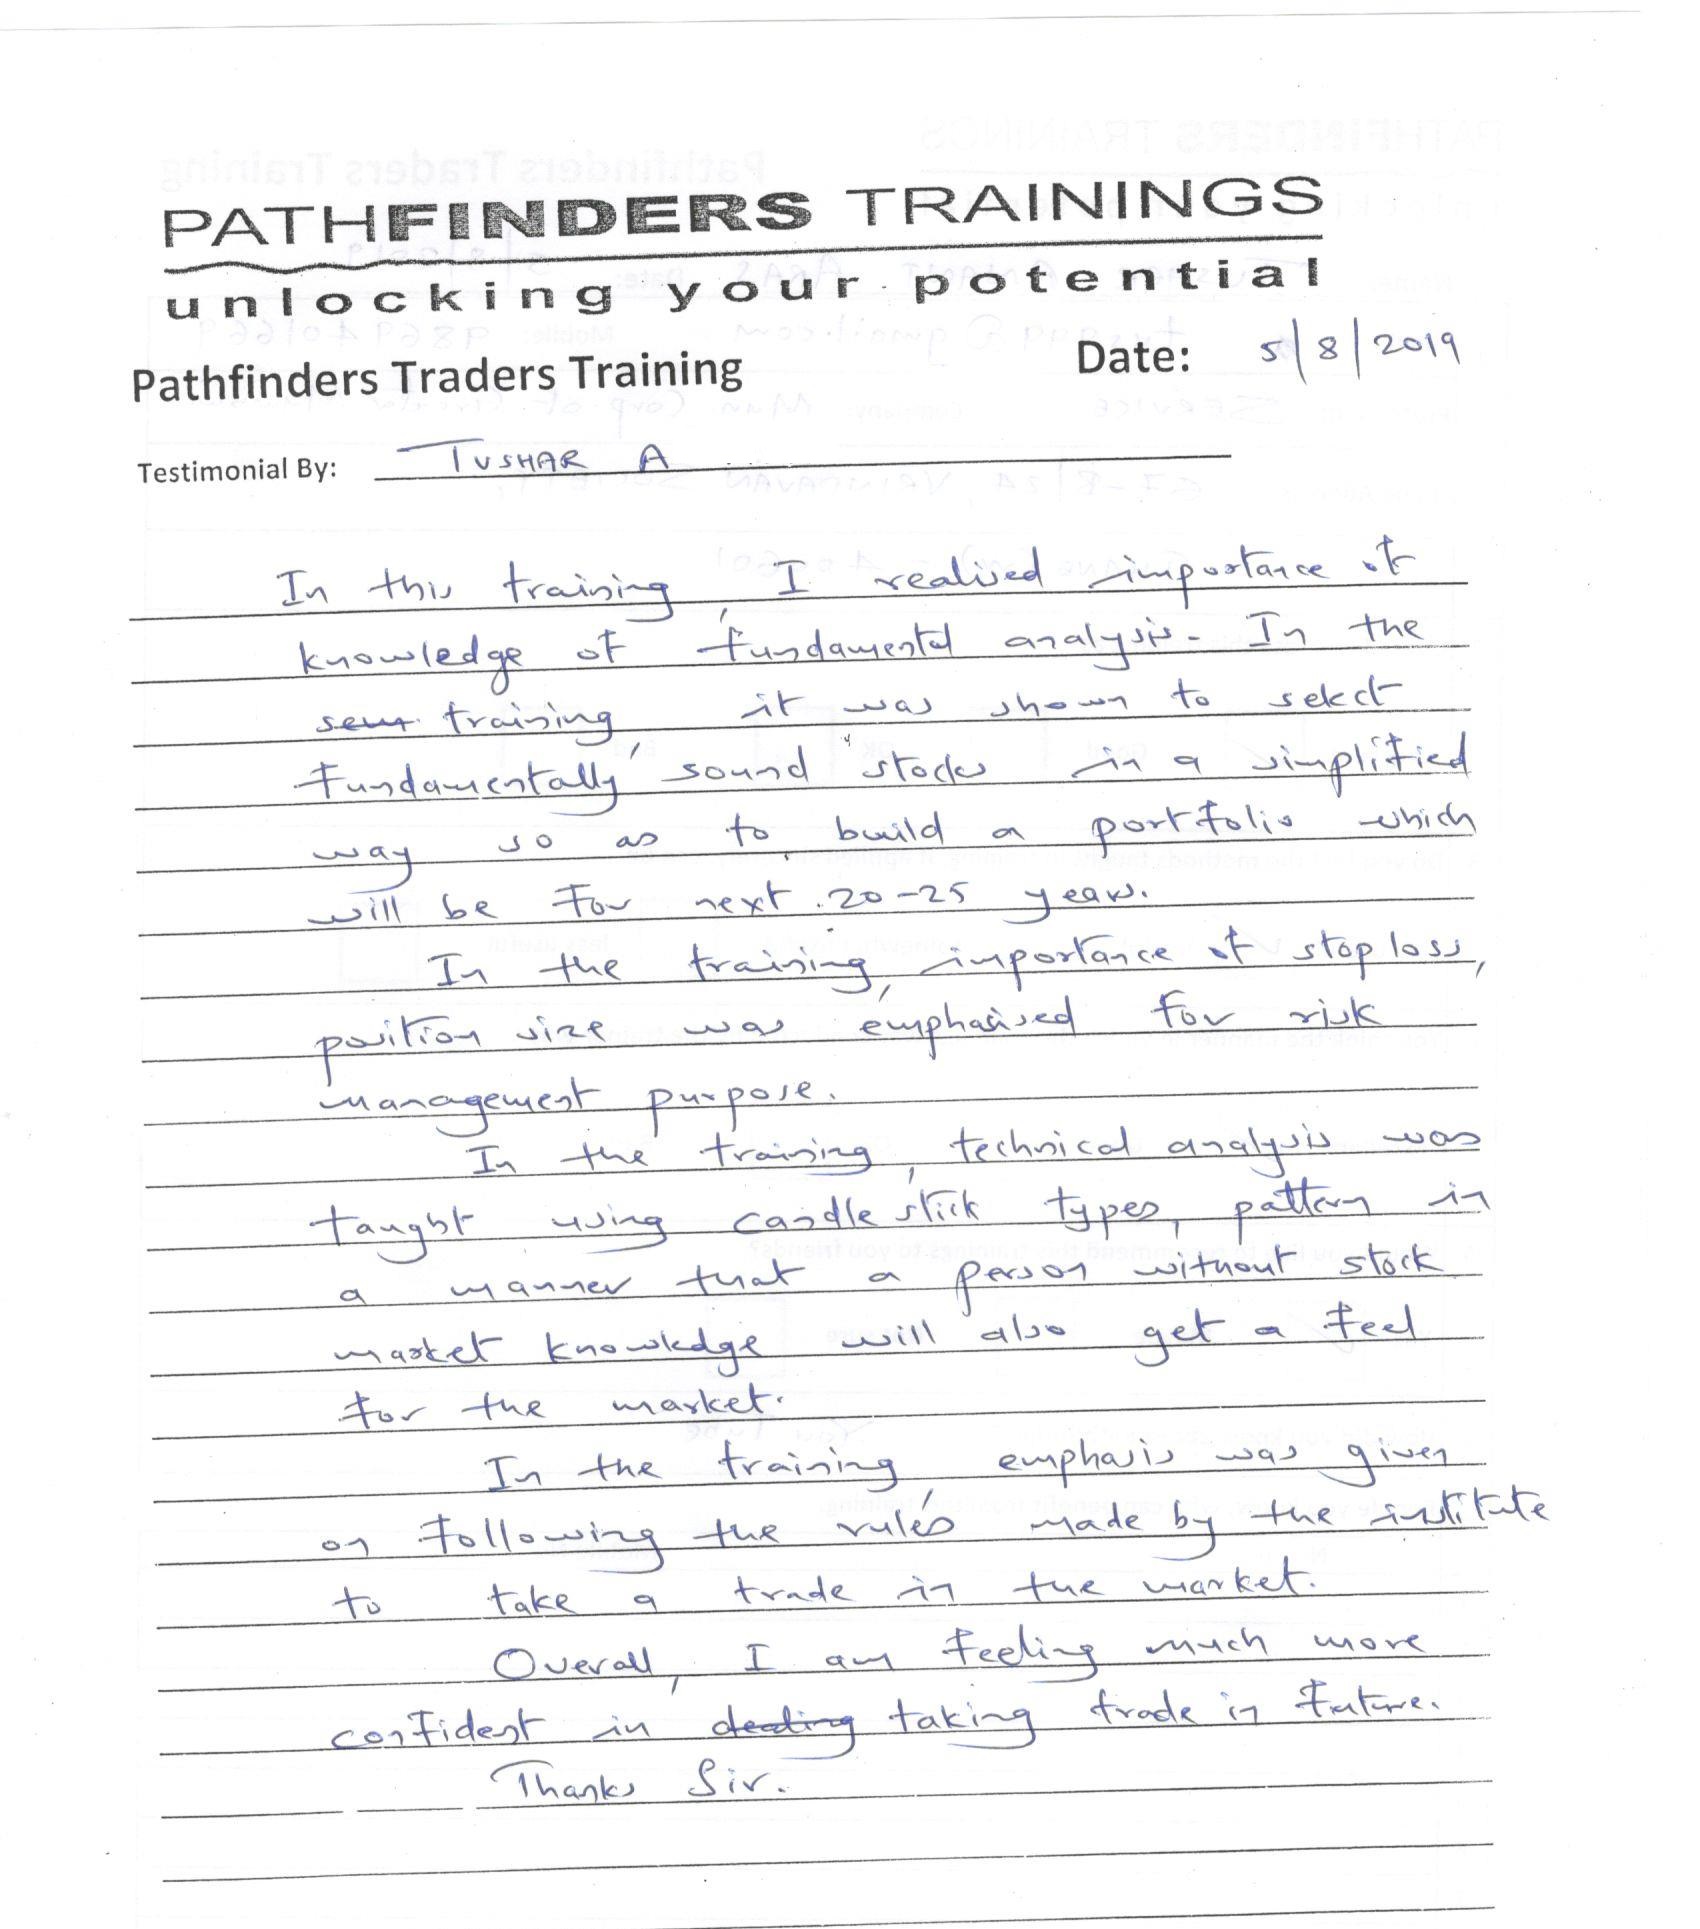 PATHFINDERS TRAININGS
unlocking your potential
Pathfinders Traders Training Date: 5/8/2019
Testimonial By: TUSHAR A
In this training, I realised importance of
knowledge of fundamental analysis. In the
training it was shown to select
fundamentally sound stocks in a simplified
way so as to build a portfolio which
will be for next 20-25 years.
In the training, importance of stop loss,
position size was emphasised for risk
management purpose.
In the training, technical analysis was
taught using candle stick types, pattern in
a manner that a person without stock
market knowledge will also get a feel
for the market.
In the training, emphasis was given
on following the rules made by the institute
to take a trade in the market.
Overall, I am feeling much more
confident in dealing taking trade in future.
Thanks Sir.